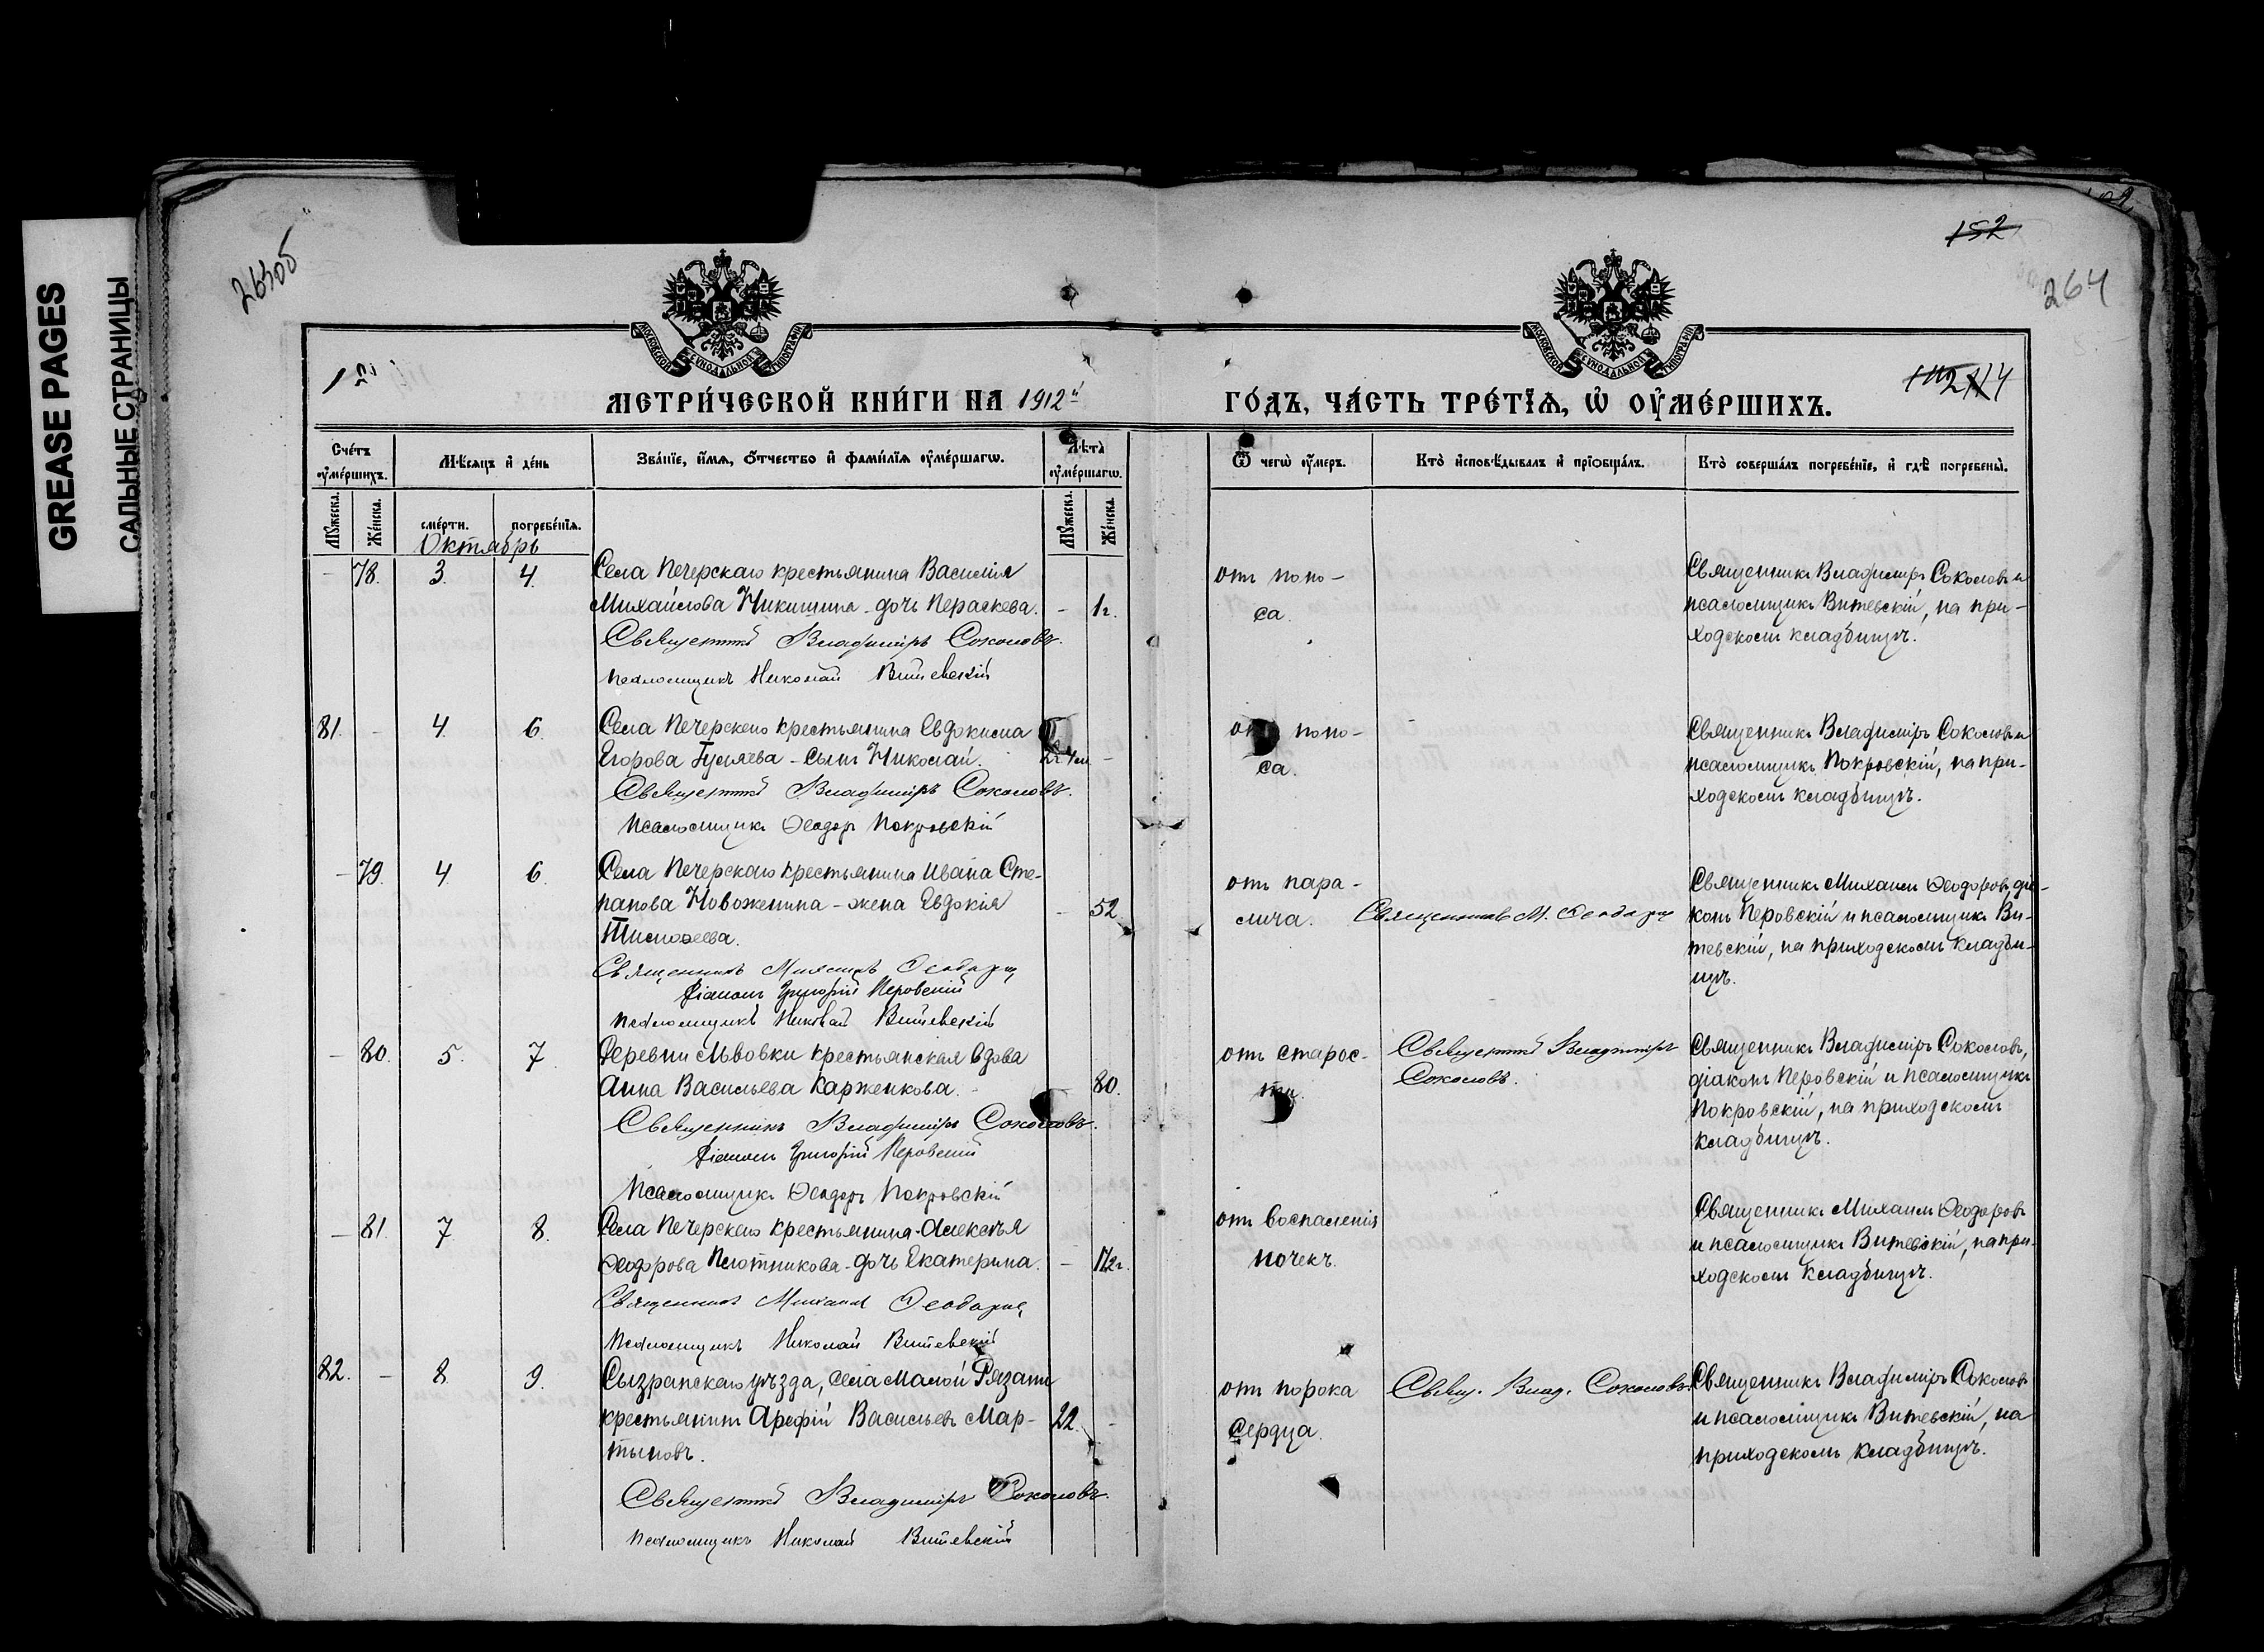 GREASE PAGES
САЛЬНЫЕ СТРАНИЦЫ
263об
152
264
МЕТРИ́ЧЕСКОЙ КНИ́ГИ НА 1912й
ГО́ДЪ, ЧА́СТЬ ТРЕ́ТЇѦ, Ѡ҆ ОУ҆МЕ́РШИХЪ.
Сче́тъ оу҆ме́ршихъ.
Мѣ́сѧцъ и҆ де́нь
Зва́нїе, и҆́мѧ, ѻ҆́тчество и҆ фами́лїѧ оу҆ме́ршагѡ.
Лѣ́та оу҆ме́ршагѡ.
Ѿ чегѡ̀ оу҆́меръ.
Кто̀ и҆сповѣ́дывалъ и҆ прїобща́лъ.
Кто̀ соверша́лъ погребе́нїе, и҆ гдѣ̀ погребены̀.
Мꙋ́жеска.
Же́нска.
сме́рти.
погребе́нїѧ.
Мꙋ́жеска.
Же́нска.
Октябрь
- 78. 3. 4. Села Печерскаго крестьянина Василія
Михайлова Никишина - дочь Параскева. - 1 г.
Священникъ Владиміръ Соколовъ.
Псаломщикъ Николай Витевскій
от поно-
са.
Священникъ Владиміръ Соколовъ и
псаломщикъ Витевскій, на при-
ходскомъ кладбищѣ.
81. - 4. 6. Села Печерскаго крестьянина Евдокима
Егорова Гуляева - сынъ Николай. 2г. 4м. -
Священникъ Владиміръ Соколовъ.
Псаломщикъ Ѳеодоръ Покровскій
отъ поно-
са.
Священникъ Владиміръ Соколовъ и
псаломщикъ Покровскій, на при-
ходскомъ кладбищѣ.
- 79. 4. 6. Села Печерскаго крестьянина Ивана Сте-
панова Новоженина - жена Евдокія - 52.
Тимоѳеева.
Священникъ Михаилъ Ѳеодоровъ
Діаконъ Григорій Перовскій
Псаломщикъ Николай Витевскій
отъ пара-
лича.
Священникъ М. Ѳеодоровъ
Священникъ Михаилъ Ѳеодоровъ, діа-
конъ Перовскій и псаломщикъ Ви-
тевскій, на приходскомъ кладби-
щѣ.
- 80. 5. 7. Деревни Львовки крестьянская вдова
Анна Васильева Карженкова. - 80.
Священникъ Владиміръ Соколовъ.
Діаконъ Григорій Перовскій
Псаломщикъ Ѳеодоръ Покровскій
отъ старос-
ти.
Священникъ Владиміръ
Соколовъ.
Священникъ Владиміръ Соколовъ,
діаконъ Перовскій и псаломщикъ
Покровскій, на приходскомъ
кладбищѣ.
- 81. 7 8. Села Печерскаго крестьянина Алексѣя
Ѳеодорова Плотникова - дочь Екатерина. -
Священникъ Михаилъ Ѳеодоровъ
Псаломщикъ Николай Витевскій
отъ воспаленія
почекъ.
Священникъ Михаилъ Ѳеодоровъ
и псаломщикъ Витевскій, на при-
ходскомъ кладбищѣ.
82. - 8. 9. Сызранскаго уѣзда, села Малой Рязани
крестьянинъ Арефій Васильевъ Мар- 22. -
тыновъ.
Священникъ Владиміръ Соколовъ.
Псаломщикъ Николай Витевскій
отъ порока
сердца.
Свящ. Влад. Соколовъ.
Священникъ Владиміръ Соколовъ
и псаломщикъ Витевскій, на
приходскомъ кладбищѣ.